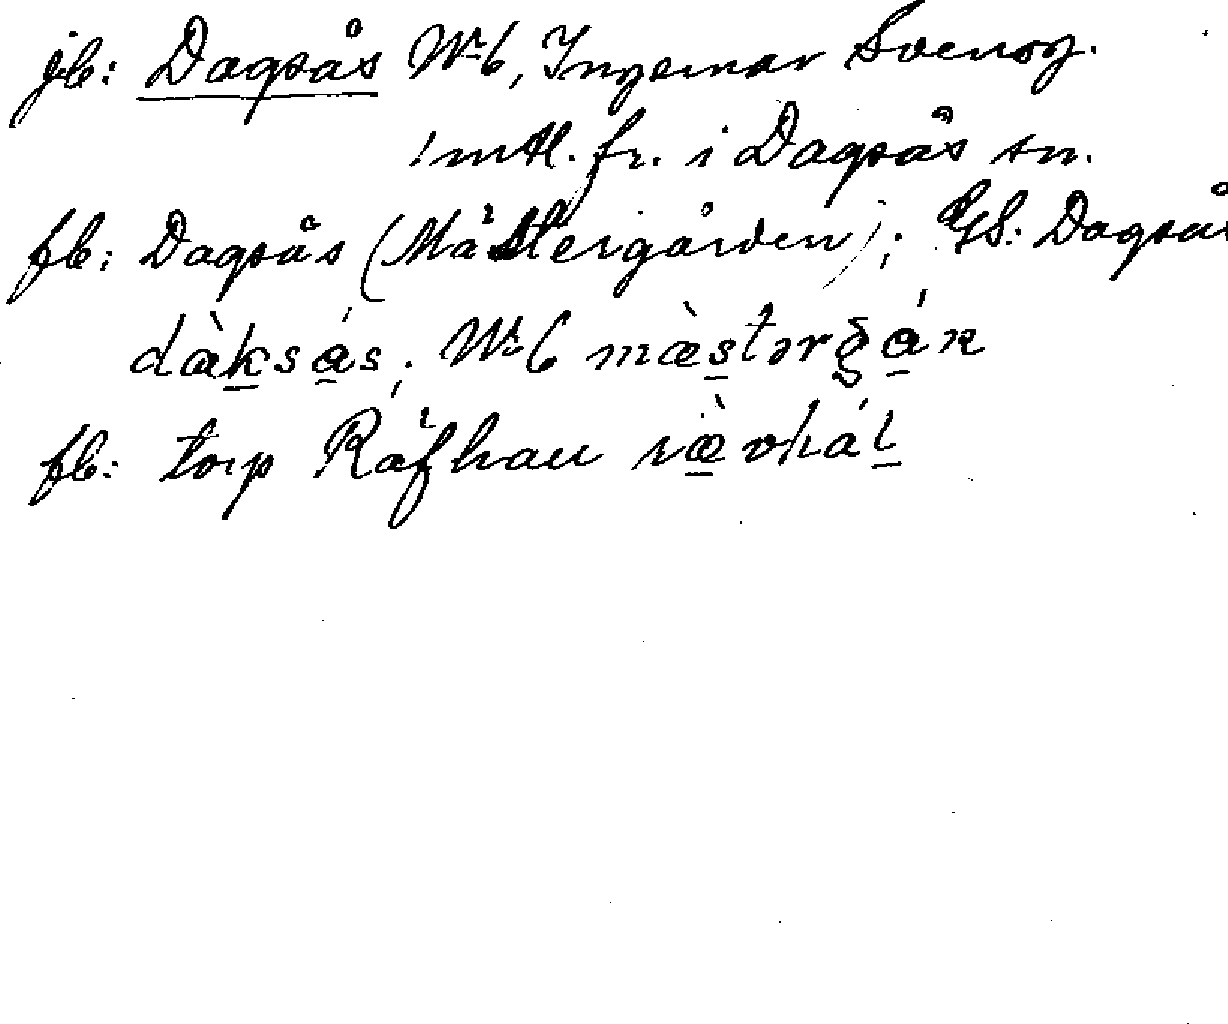 jb: Dagsås No 6, Ingemar Svensg.
1 mtl. fr. i Dagsås sn.
fb: Dagsås (Mästergården); GS: Dagsås
dàksás; No 6 mæ̀stərgán
fb: torp Räfhau ræ̀vhál